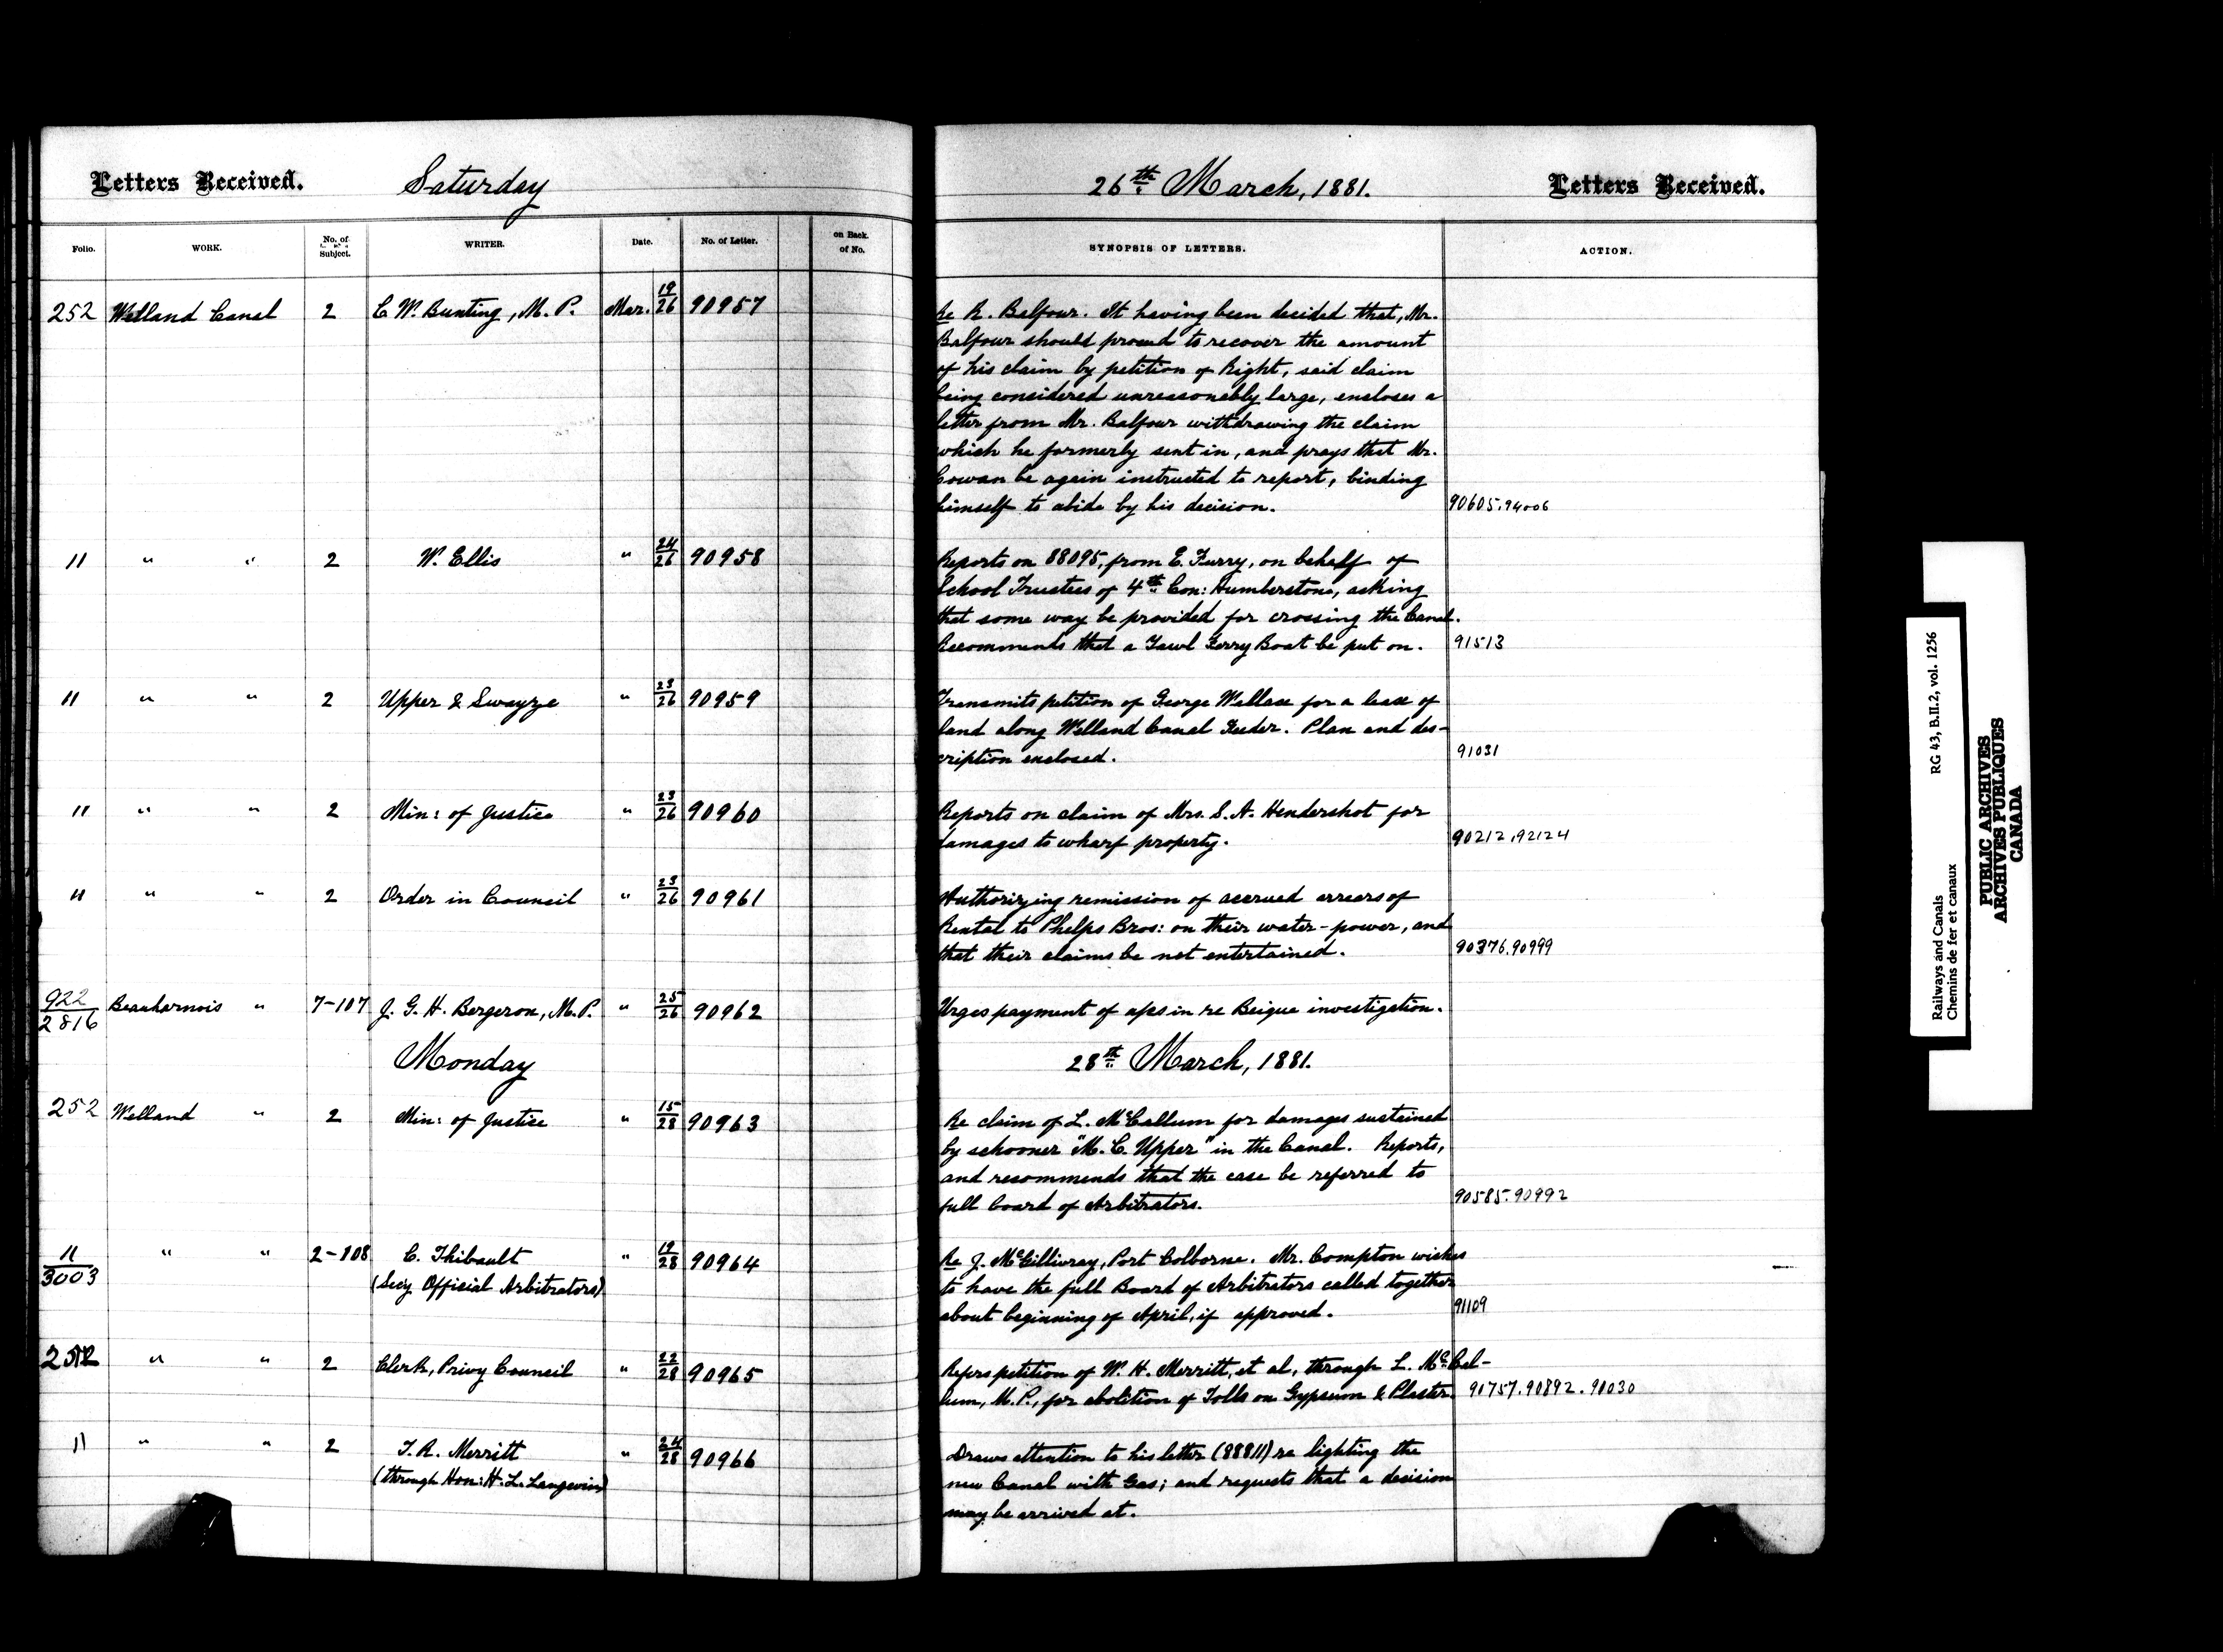 Letters Received. Saturday
26th March, 1881. Letters Received.
Folio. WORK. No. of Subject. WRITER. Date. No. of Letter. on Back of No.
SYNOPSIS OF LETTERS. ACTION.
252 Welland Canal 2 C W. Bunting, M. P. Mar. 19/26 90957
Re R. Balfour. It having been decided that, Mr.
Balfour should proceed to recover the amount
of his claim by petition of Right, said claim
being considered unreasonably large, encloses a
letter from Mr. Balfour withdrawing the claim
which he formerly sent in, and prays that Mr.
Cowan be again instructed to report, binding
himself to abide by his decision. 90605.94006
11 " " 2 W. Ellis " 24/26 90958
Reports on 88095, from E. Furry, on behalf of
School Trustees of 4th Con: Humberstone, asking
that some way be provided for crossing the Canal.
Recommends that a Yawl Ferry Boat be put on. 91513
11 " " 2 Upper & Swayze " 23/26 90959
Transmits petition of George Wallace for a lease of
land along Welland Canal Feeder. Plan and des-
cription enclosed. 91031
11 " " 2 Min: of Justice " 23/26 90960
Reports on claim of Mrs. S. A. Hendershot for
damages to wharf property. 90212.92124
11 " " 2 Order in Council " 23/26 90961
Authorizing remission of accrued arrears of
Rental to Phelps Bros: on their water-power, and
that their claims be not entertained. 90376.90999
922/2816 Beauharnois " 7-107 J. G. H. Bergeron, M. P. " 25/26 90962
Urges payment of a/cs in re Beique investigation.
Monday 28th March, 1881.
252 Welland " 2 Min: of Justice " 15/28 90963
Re claim of L. McCallum for damages sustained
by schooner "M. C. Upper" in the Canal. Reports,
and recommends that the case be referred to
full board of Arbitrators. 90585.90992
11/3003 " " 2-108 C. Thibault " 19/28 90964
(Secy Official Arbitrators)
Re J. McGillivray, Port Colborne. Mr. Compton wishes
to have the full Board of Arbitrators called together
about beginning of April, if approved. 91109
252 " " 2 Clerk, Privy Council " 22/28 90965
Refers petition of W. H. Merritt, et al, through L. McCal-
lum, M. P., for abolition of Tolls on Gypsum & Plaster. 90757.90892.91030
11 " " 2 T. R. Merritt " 24/28 90966
(through Hon: H. L. Langevin)
Draws attention to his letter (88811) re lighting the
new Canal with Gas; and requests that a decision
may be arrived at.
Railways and Canals RG 43, B.II.2, vol. 1256
Chemins de fer et canaux
PUBLIC ARCHIVES
ARCHIVES PUBLIQUES
CANADA